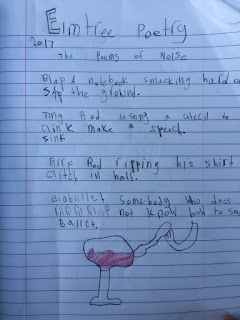 Elmtree Poetry
2017
The Poems of Noise
Slap A notebook smacking hard on
the ground.
Ting Rod using a utecil to
clink make a speech.
sink
Rrrp Rod ripping his shirt
in half.
Somebody who does
not know how to say
Ballet.